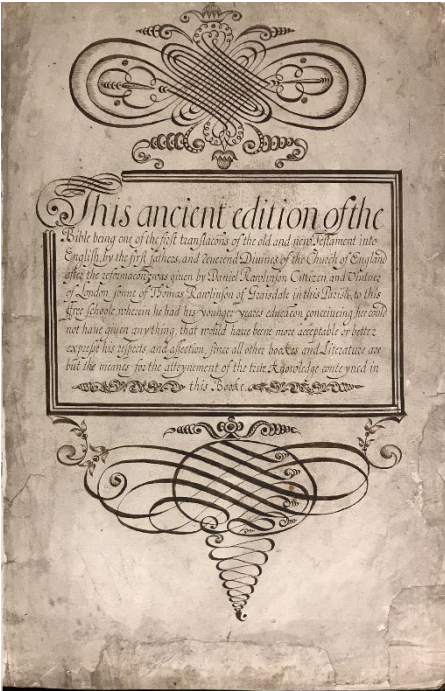 This ancient edition of the
Bible being one of the first translacons of the old and new Testament into
English, by the first fathers, and Reverend Divines of the Church of England
after the reformacon was given by Daniel Rawlinson Cittizen and Vintner
of London sonne of Thomas Rawlinson of Graisdale in this Parish, to this
ffree schoole wherein he had his younger yeares educacon, conceiveing hee could
not have given any thing, that would have beene more acceptable or better
exprest his respects, and affection, since all other bookes and Literature are
but the meanes for the atteynement of the true Knowledge conteyned in
this Booke.